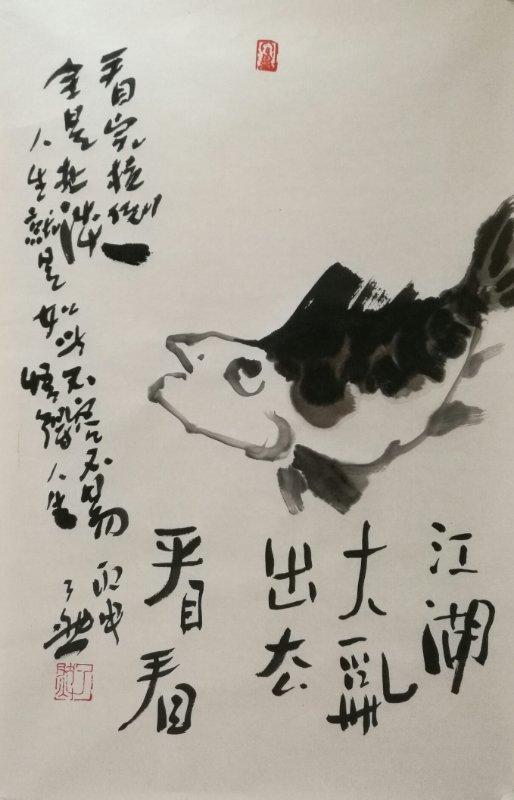 江湖
大亂
出去
看看
看完拉倒一
全是扯淡
人生就是如此
不容不易
人生
丙申